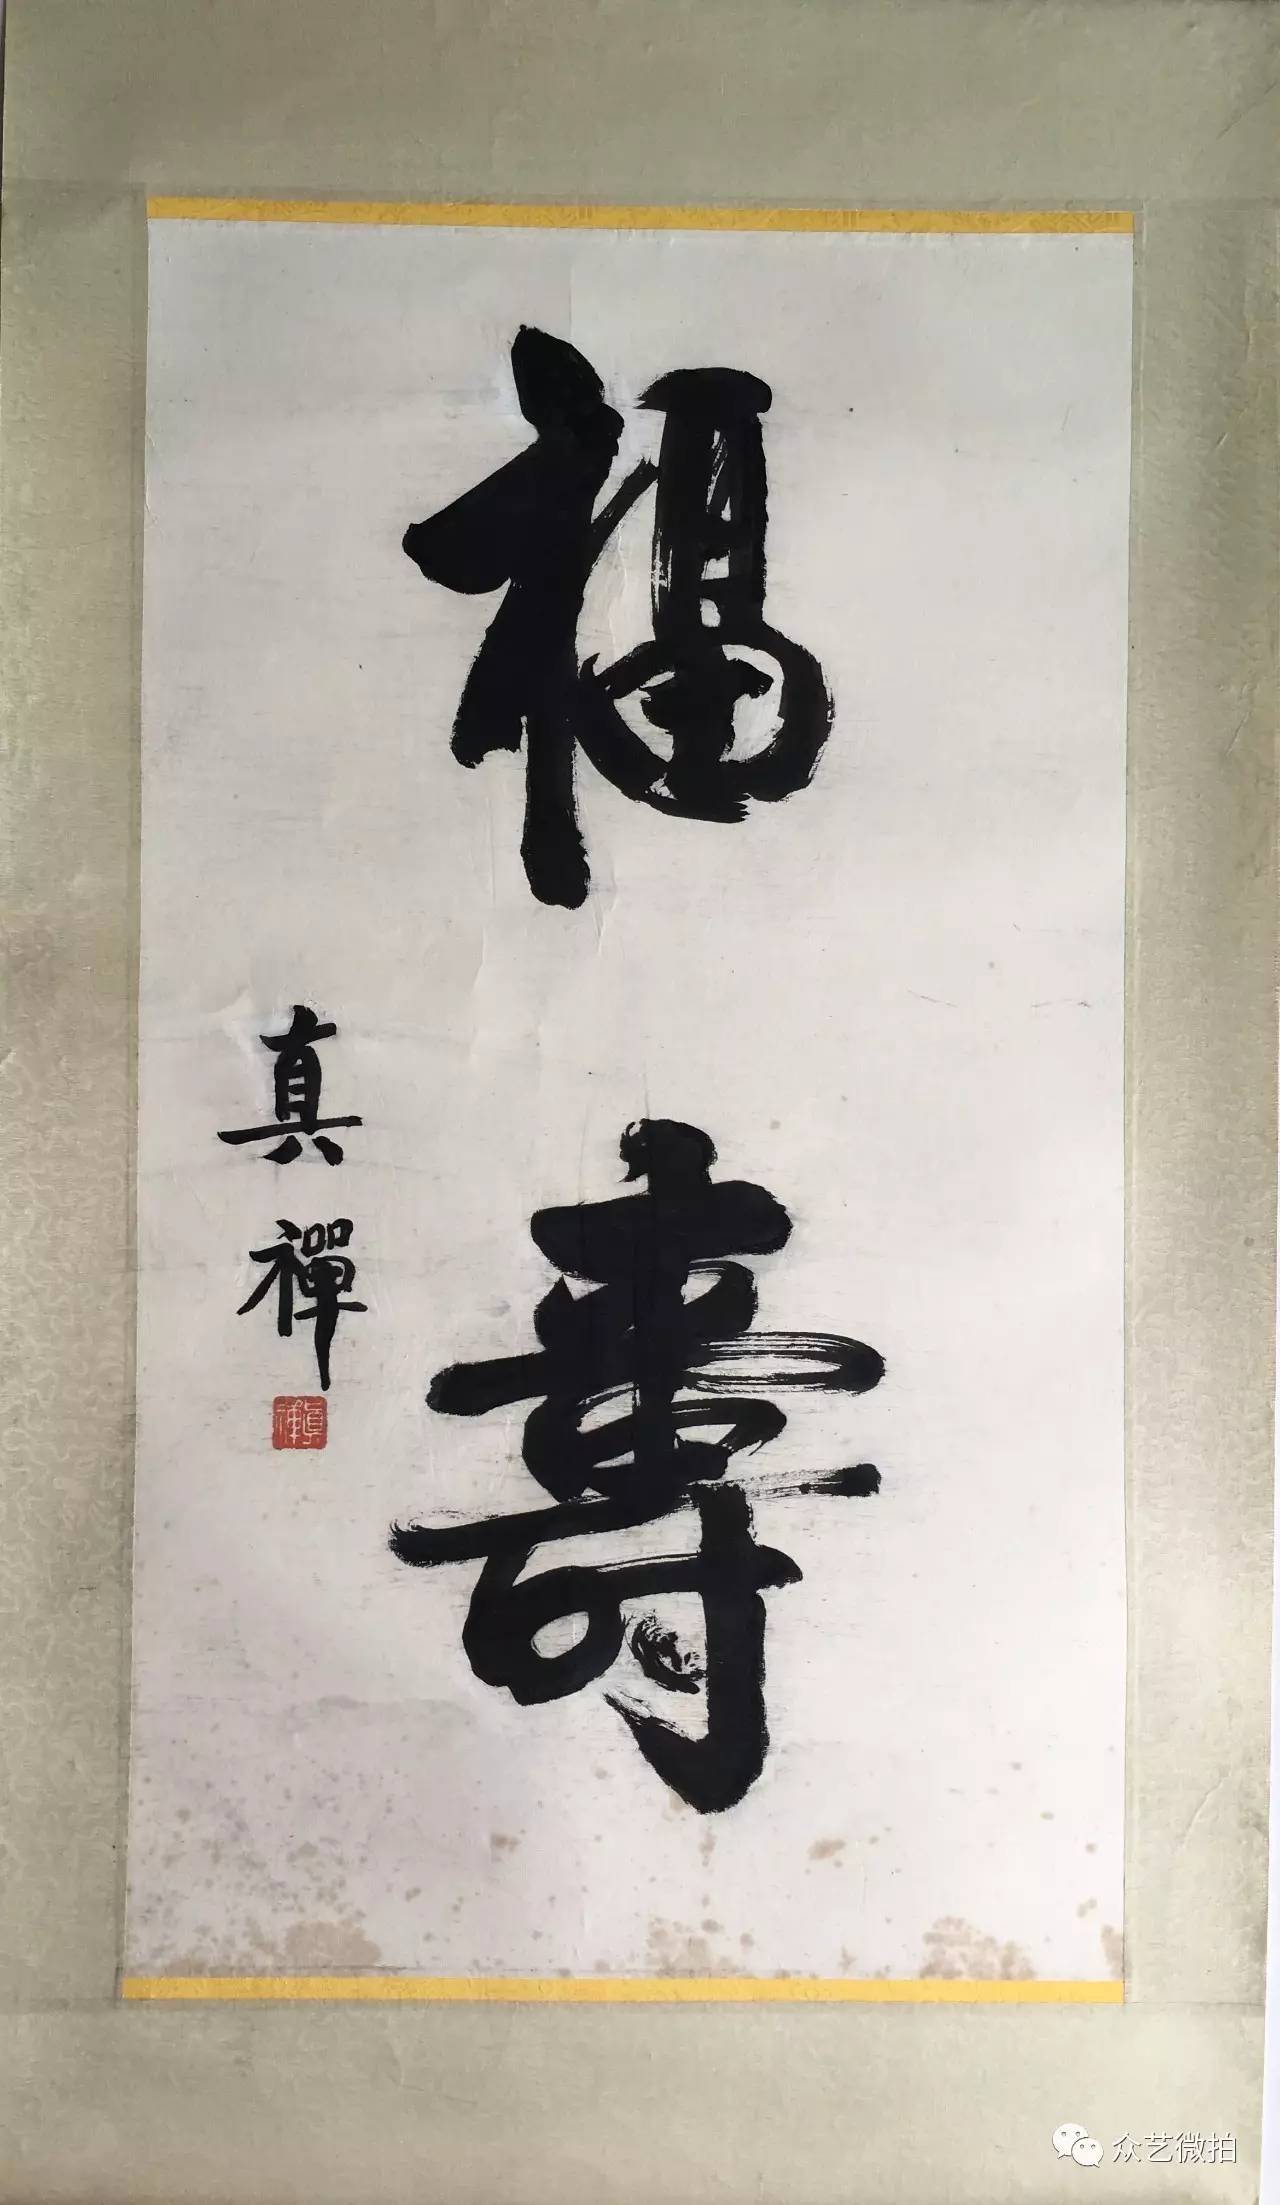 福壽
真禪
眞禪
众艺微拍